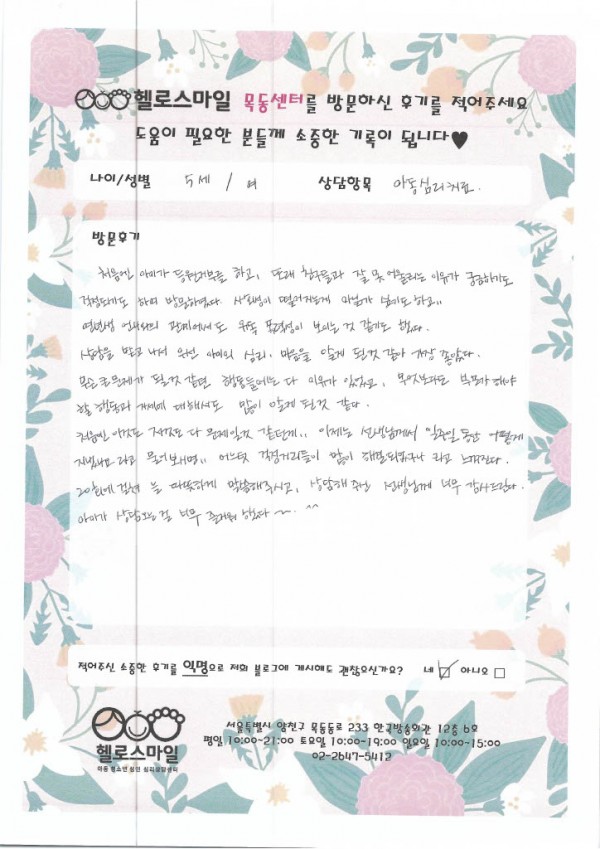 헬로스마일 목동센터를 방문하신 후기를 적어주세요
도움이 필요한 분들께 소중한 기록이 됩니다♥
나이/성별 5세 / 여 상담항목 아동심리치료.
방문후기
처음엔 아이가 등원거부를 하고, 또래 친구들과 잘 못 어울리는 이유가 궁금하기도
걱정되기도 하여 방문하였다. 사회성이 떨어지는게 마음가 보이기도 하고..
연년생 언니와의 관계에서도 폭력성이 보이는 것 같기도 했다.
상담을 받고 나서 우선 아이의 심리, 마음을 알게 된것 같아 가장 좋았다.
모든 큰 문제가 될것 같던 행동들에는 다 이유가 있었고, 무엇보다도 부모가 해야
할 행동과 자세에 대해서도 많이 알게 된 것 같다.
처음엔 이것도 저것도 다 문제인것 같던게.. 이제는 선생님께서 일주일 동안 어떻게
지냈나요 라고 물어보시면.. 어느덧 걱정거리들이 많이 해결되었구나 라고 느껴진다.
20회에 걸쳐 늘 따뜻하게 말씀해주시고, 상담해 주신 선생님께 너무 감사드린다.
아이가 상담오는걸 너무 즐거워 했다~. ^^
적어주신 소중한 후기를 익명으로 저희 블로그에 게시해도 괜찮으신가요? 네 ☑ 아니오 □
헬로스마일
아동 청소년 성인 심리상담센터
서울특별시 양천구 목동동로 233 한국방송회관 12층 b호
평일 10:00~21:00 토요일 10:00~19:00 일요일 10:00~15:00
02-2647-5412